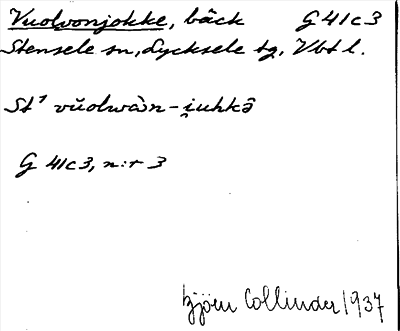 Vuolvonjokke, bäck G 41c3
Stensele sn, Lycksele tg, Vbt l.
St¹ vŭolwàn-i̯uhkə̂
G 41c3, n:r 3
Björn Collinder 1937